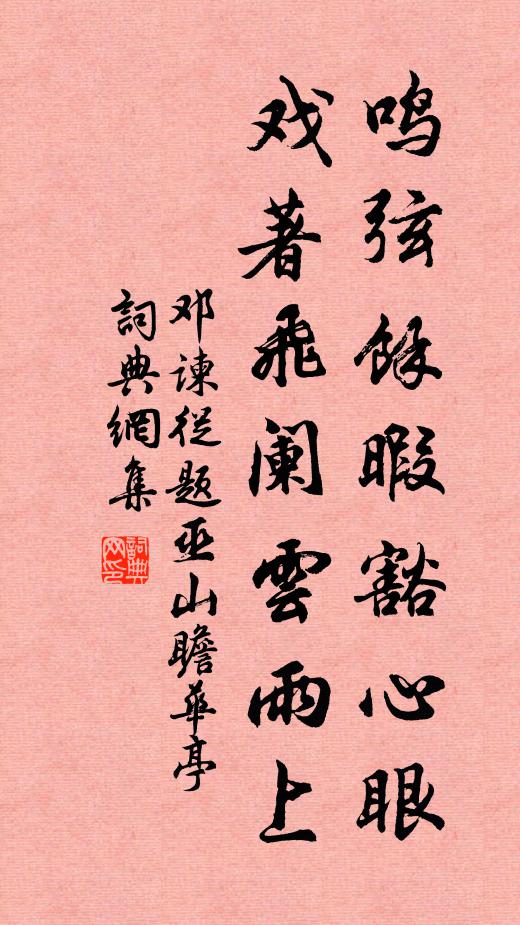 鸣弦餘暇豁心眼
戏著飛阑雲雨上
邓谏從题巫山瞻華亭
詞典網集
詞典网印